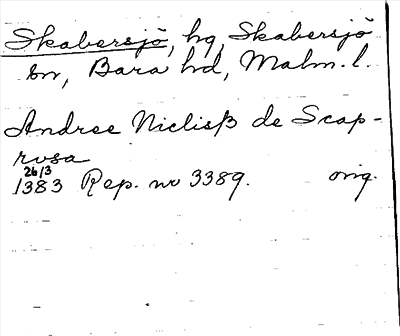 Skabersjö, hg, Skabersjö
sn, Bara hd, Malm. l.
Andree Niclisß de Scap-
rosa
26/3
1383 Rep. nr 3389. orig.